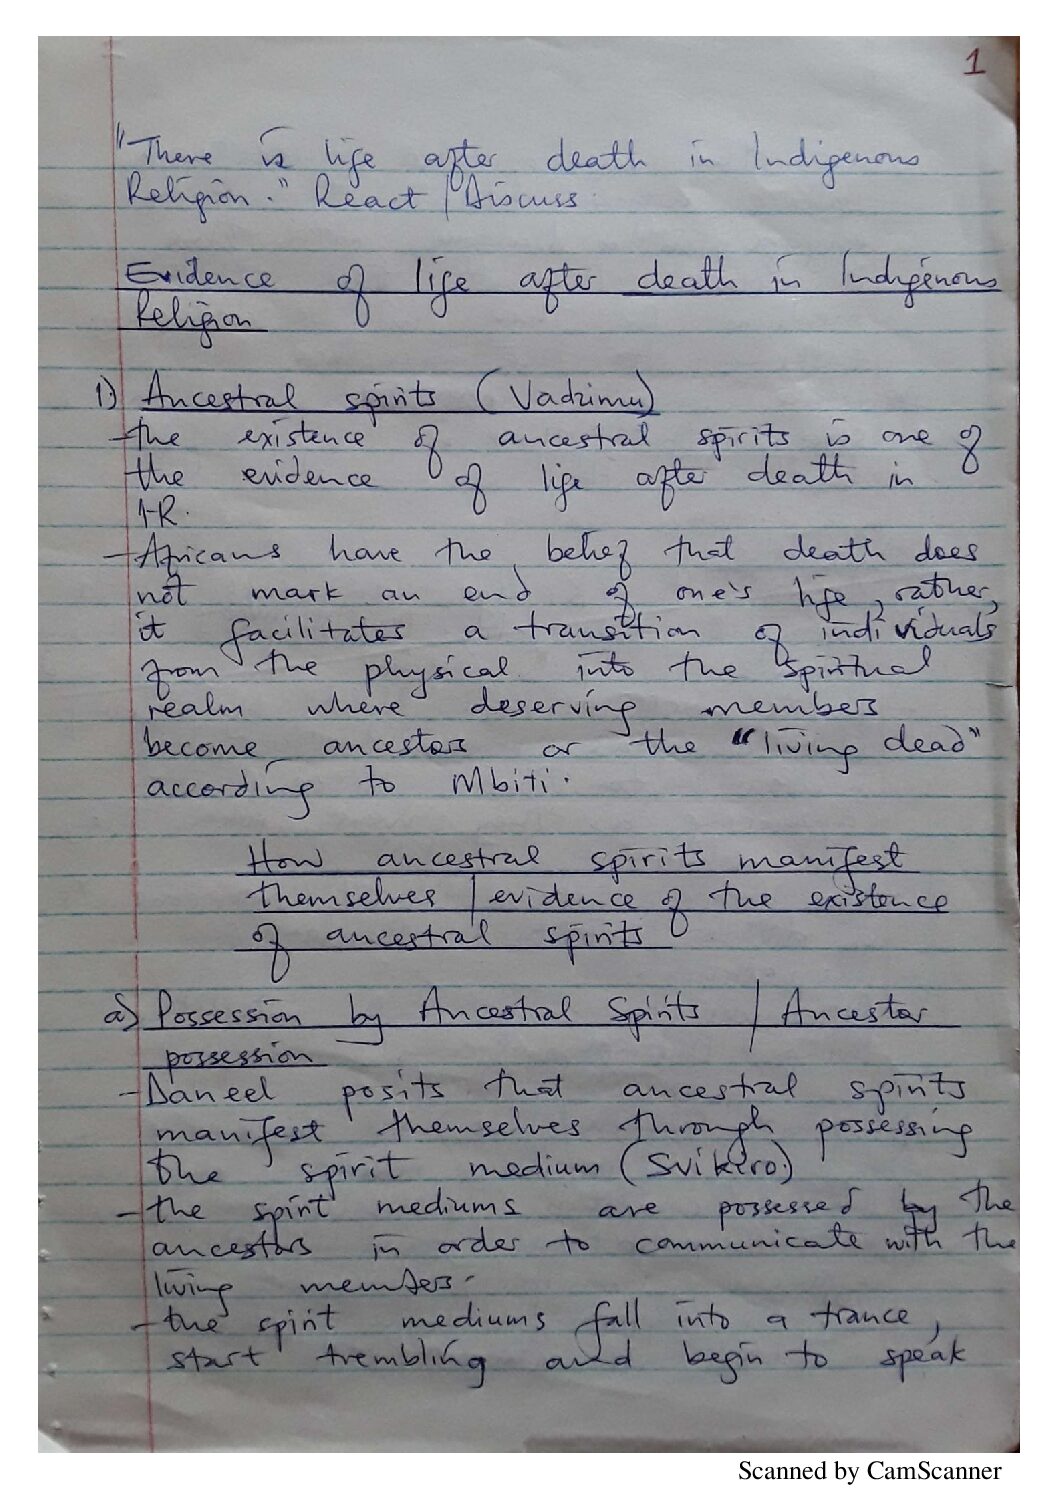 1
"There is life after death in Indigenous
Religion." React / Discuss.
Evidence of life after death in Indigenous
Religion
1) Ancestral spirits (Vadzimu)
- the existence of ancestral spirits is one of
the evidence of life after death in
I.R.
- Africans have the belief that death does
not mark an end of one's life, rather,
it facilitates a transition of individuals
from the physical into the spiritual
realm where deserving members
become ancestors or the "living dead"
according to Mbiti.
How ancestral spirits manifest
themselves / evidence of the existence
of ancestral spirits
a) Possession by Ancestral Spirits / Ancestor
possession
- Daneel posits that ancestral spirits
manifest themselves through possessing
the spirit medium (Svikiro)
- the spirit mediums are possessed by the
ancestors in order to communicate with the
living members.
- the spirit mediums fall into a trance,
start trembling and begin to speak
Scanned by CamScanner